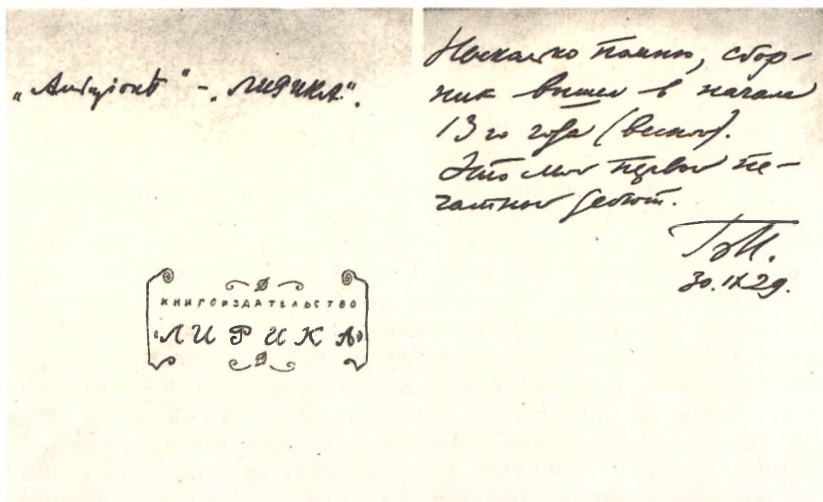 "ЛИРИКА".
КНИГОИЗДАТЕЛЬСТВО
«ЛИРИКА»
Насколько помню, сбор-
ник вышел в начале
13го года (весной).
Это мой первый пе-
чатный дебют.
БП.
30.IX.29.